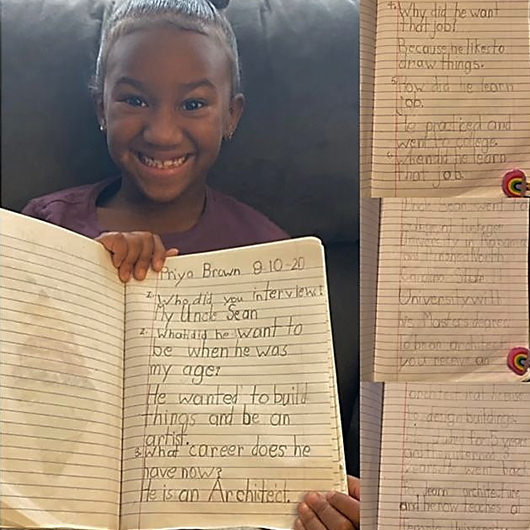 Priya Brown 9-10-20
1. Who did you interview?
My Uncle Sean
2. What did he want to
be when he was
my age?
He wanted to build
things and be an
artist.
3. What career does he
have now?
He is an Architect.
4. Why did he want
that job?
Because he likes to
draw things.
5. How did he learn
job.
He practiced and
went to college.
6. when did he learn
that job.
University in
North
Carolina State
University with
his Masters degree
to be an architect
you receive an
to design buildings.
for 6 years
and
went back
to learn architecture
and he now teaches at